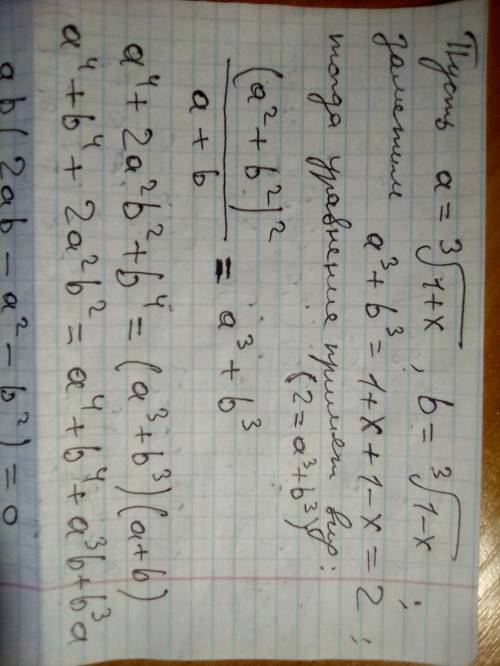 Пусть a = ∛1+x , b = ∛1−x ;
Заметим a³ + b³ = 1 + x + 1 − x = 2 ;
тогда уравнение примет вид:
(2 = a³ + b³)
(a² + b²)² / a + b = a³ + b³
a⁴ + 2a²b² + b⁴ = (a³ + b³)(a + b)
a⁴ + b⁴ + 2a²b² = a⁴ + b⁴ + a³b + b³a
ab(2ab − a² − b²) = 0